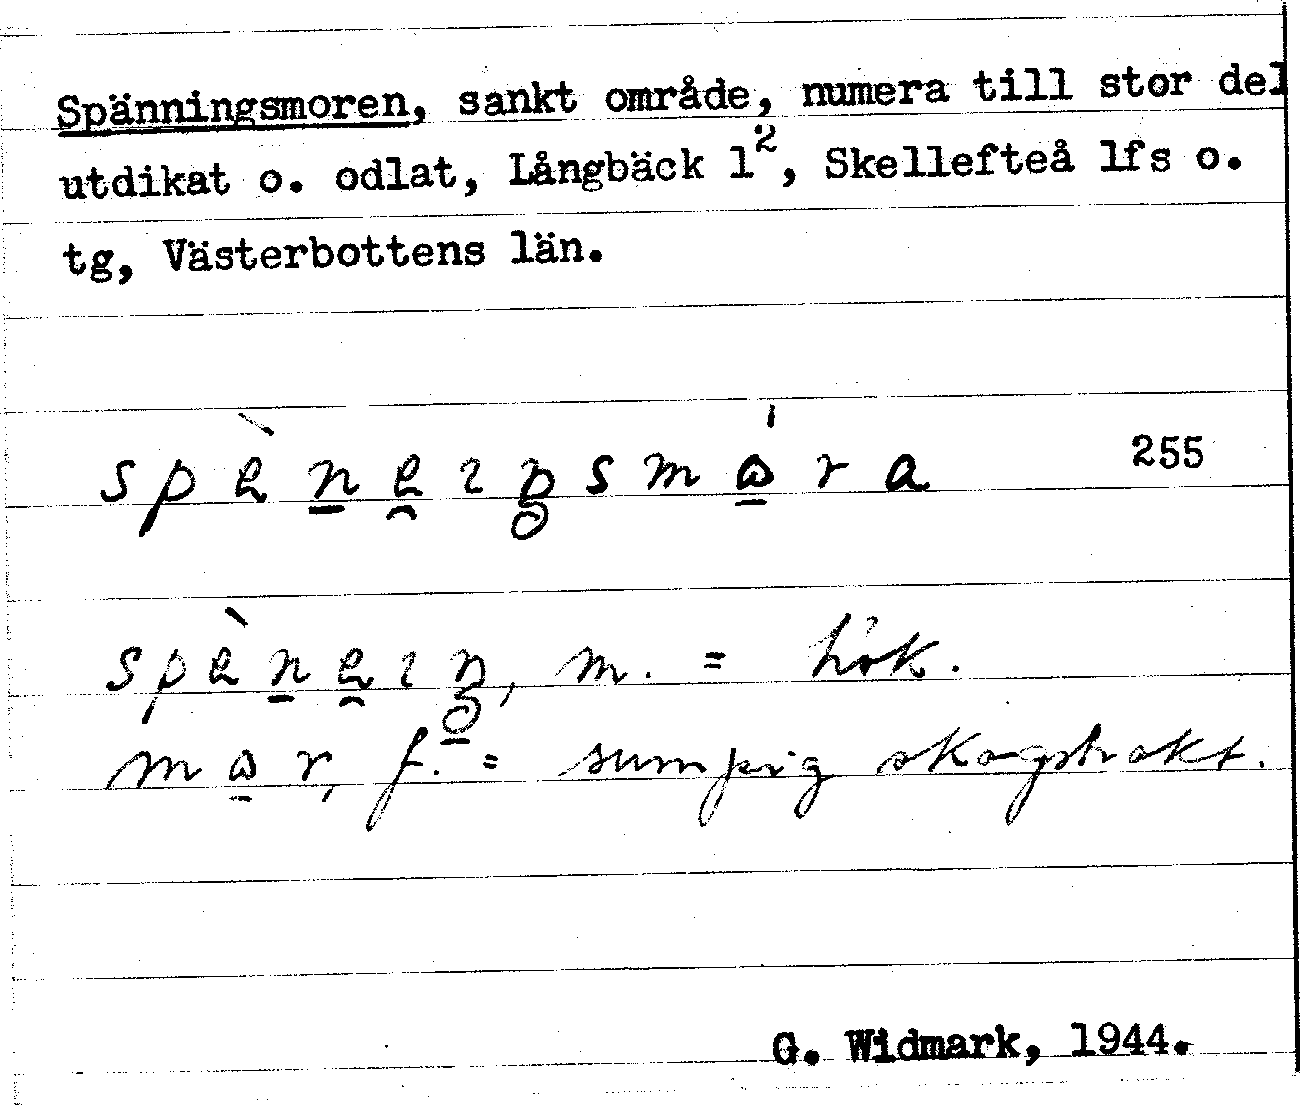 Spänningsmoren, sankt område, numera till stor del
utdikat o. odlat, Långbäck 1², Skellefteå lfs o.
tg, Västerbottens län.
255
m. = hök.
f. = sumpig skogstrakt.
G. Widmark, 1944.